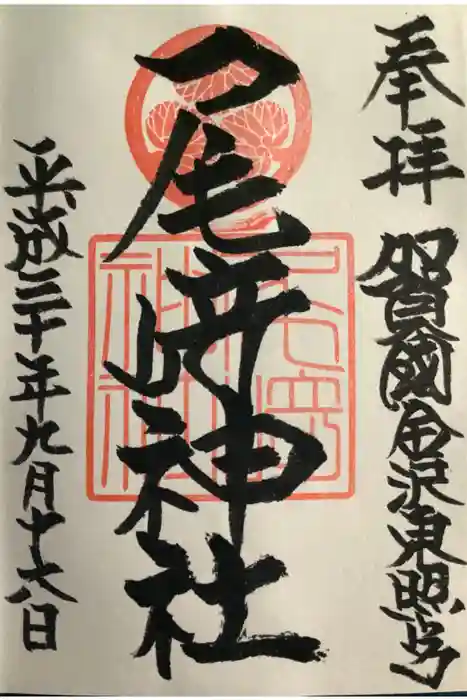 奉拝
賀國金沢東照宮
尾﨑神社
平成三十年九月十六日